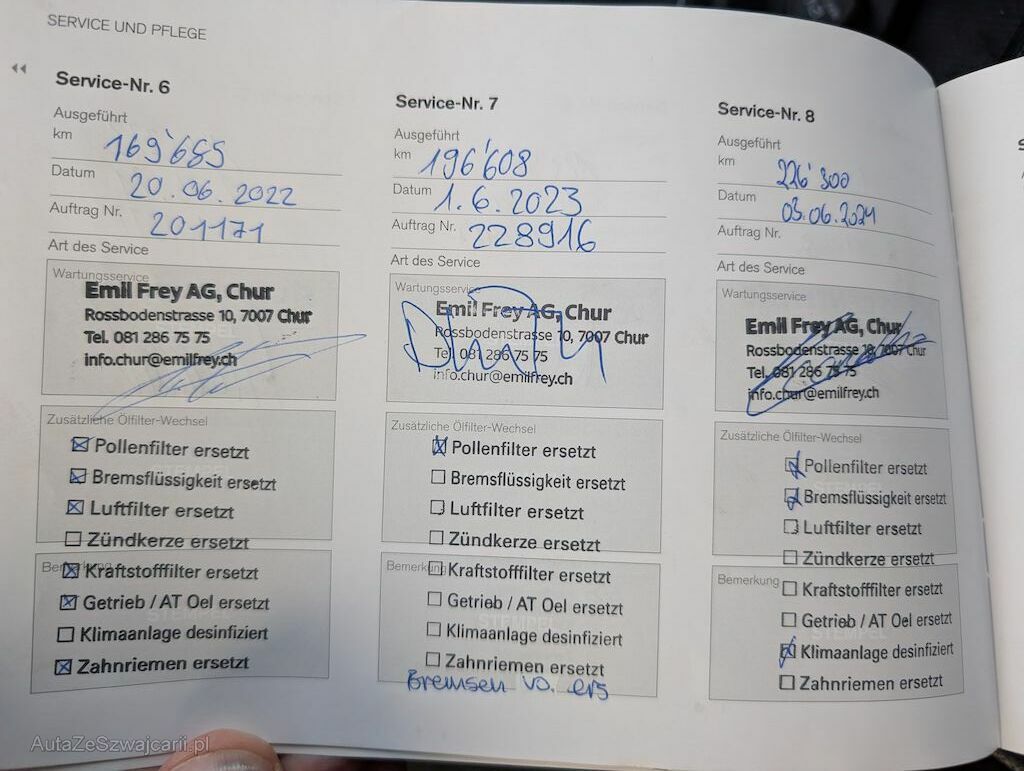 SERVICE UND PFLEGE
Service-Nr. 6
Ausgeführt
km 169'655
Datum 20.06.2022
Auftrag Nr. 201171
Art des Service
Wartungsservice
Emil Frey AG, Chur
Rossbodenstrasse 10, 7007 Chur
Tel. 081 286 75 75
info.chur@emilfrey.ch
Zusätzliche Ölfilter-Wechsel
Pollenfilter ersetzt
Bremsflüssigkeit ersetzt
Luftfilter ersetzt
Zündkerze ersetzt
Bemerkung
Kraftstofffilter ersetzt
Getrieb / AT Oel ersetzt
Klimaanlage desinfiziert
Zahnriemen ersetzt
Service-Nr. 7
Ausgeführt
km 196'608
Datum 1.6.2023
Auftrag Nr. 228916
Art des Service
Wartungsservice
Emil Frey AG, Chur
Rossbodenstrasse 10, 7007 Chur
Tel. 081 286 75 75
info.chur@emilfrey.ch
Zusätzliche Ölfilter-Wechsel
Pollenfilter ersetzt
Bremsflüssigkeit ersetzt
Luftfilter ersetzt
Zündkerze ersetzt
Bemerkung
Kraftstofffilter ersetzt
Getrieb / AT Oel ersetzt
Klimaanlage desinfiziert
Zahnriemen ersetzt
Bremsen vo. ers
Service-Nr. 8
Ausgeführt
km 226'300
Datum 03.06.2024
Auftrag Nr.
Art des Service
Wartungsservice
Emil Frey AG, Chur
Rossbodenstrasse 10, 7007 Chur
Tel. 081 286 75 75
info.chur@emilfrey.ch
Zusätzliche Ölfilter-Wechsel
Pollenfilter ersetzt
STEMPEL
Bremsflüssigkeit ersetzt
Luftfilter ersetzt
Zündkerze ersetzt
Bemerkung
Kraftstofffilter ersetzt
Getrieb / AT Oel ersetzt
STEMPEL
Klimaanlage desinfiziert
Zahnriemen ersetzt
AutaZeSzwajcarii.pl